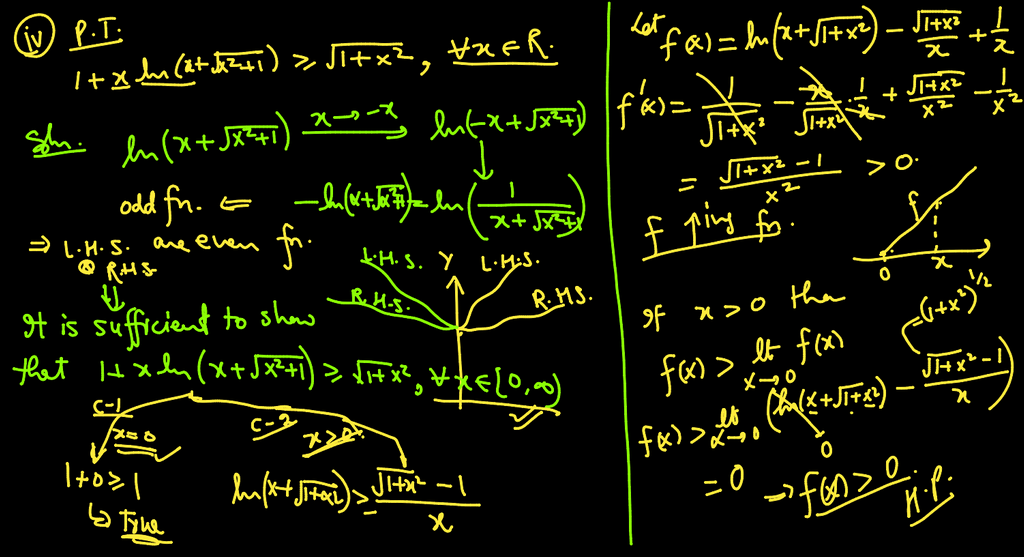 (iv) P.T.
1 + x ln(x+√x²+1) ≥ √1+x², ∀x∈R.
Soln. ln(x+√x²+1) x→-x ln(-x+√x²+1)
odd fn. ⇐ -ln(x+√x²+1) = ln(1/(x+√x²+1))
⇒ L.H.S. & R.H.S. are even fn.
L.H.S. Y L.H.S.
R.H.S. R.H.S.
It is sufficient to show
that 1+x ln(x+√x²+1) ≥ √1+x², ∀x∈[0,∞)
C-1 C-2
x=0 x>0
1+0 ≥ 1 ln(x+√1+x²) ≥ (√1+x² - 1)/x
↳ True
Let f(x) = ln(x+√1+x²) - √1+x²/x + 1/x
f'(x) = 1/√1+x² - x/√1+x² · 1/x + √1+x²/x² - 1/x²
= (√1+x² - 1)/x² > 0.
f ↑ing fn.
f
0 x
If x>0 then
(1+x²)^1/2
f(x) > lt x→0 f(x)
f(x) > lt x→0 (ln(x+√1+x²) - (√1+x² - 1)/x)
0
= 0 → f(x) > 0
H.P.